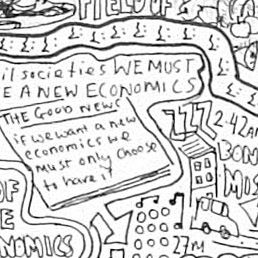 FIELD OF
il societies WE MUST
E A NEW ECONOMICS
THE GOOD NEWS
if we want a new
economics we
must only choose
to have it
ZZZ
2:42AM
BON
MIS
OF
E
NOMICS
27M